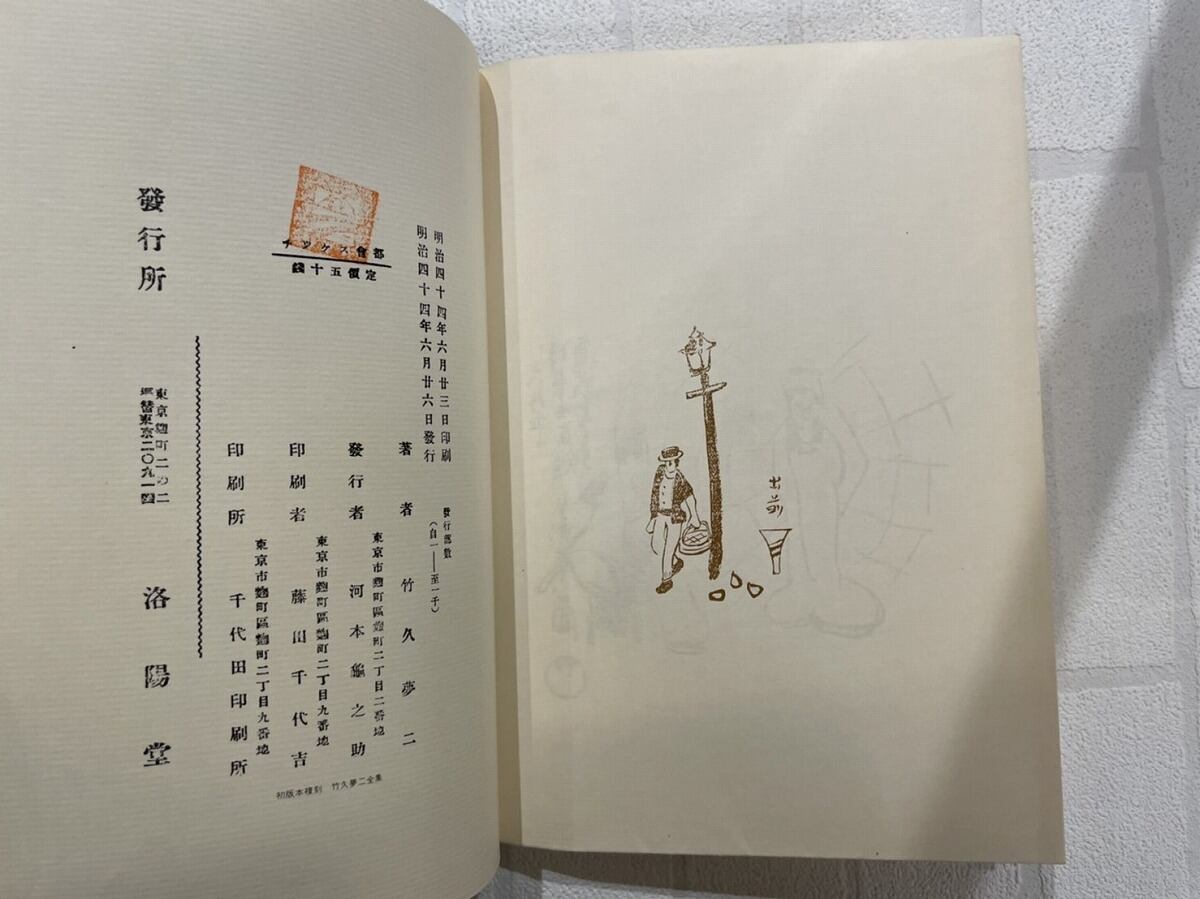 都會スケッチ
定價五十錢
明治四十四年六月廿三日印刷
明治四十四年六月廿六日發行
發行部數
(自一——至一千)
著者 竹久夢二
東京市麴町區麴町二丁目二番地
發行者 河本龜之助
東京市麴町區麴町二丁目九番地
印刷者 藤田千代吉
東京市麴町區麴町二丁目九番地
印刷所 千代田印刷所
發行所
東京麴町二の二
振替東京二〇九一四
洛陽堂
初版本複刻 竹久夢二全集
出前